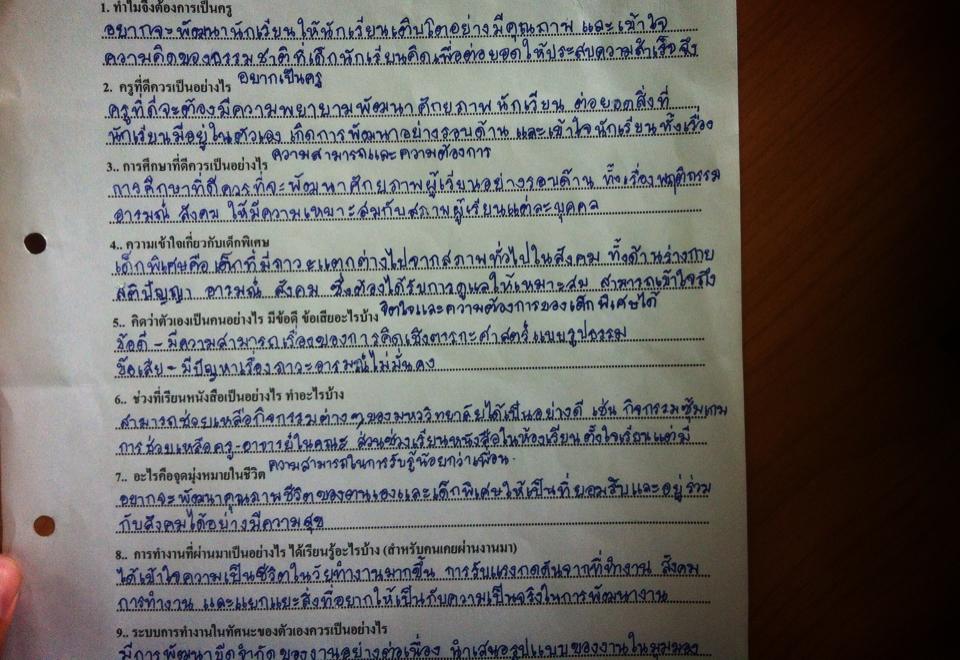 1. ทำไมจึงต้องการเป็นครู
อยากจะพัฒนานักเรียนให้นักเรียนเติบโตอย่างมีคุณภาพ และเข้าใจ
ความคิดของธรรมชาติที่เด็กนักเรียนคิดเพื่อต่อยอดให้ประสบความสำเร็จ จึง
อยากเป็นครู
2. ครูที่ดีควรเป็นอย่างไร
ครูที่ดีจะต้องมีความพยายามพัฒนาศักยภาพนักเรียน ต่อยอดสิ่งที่
นักเรียนมีอยู่ในตัวเอง เกิดการพัฒนาอย่างรอบด้าน และเข้าใจนักเรียนทั้งเรื่อง
ความสามารถและความต้องการ
3.. การศึกษาที่ดีควรเป็นอย่างไร
การศึกษาที่ดีควรที่จะพัฒนาศักยภาพผู้เรียนอย่างรอบด้าน ทั้งเรื่องพฤติกรรม
อารมณ์ สังคม ให้มีความเหมาะสมกับสภาพผู้เรียนแต่ละบุคคล
4.. ความเข้าใจเกี่ยวกับเด็กพิเศษ
เด็กพิเศษคือเด็กที่มีภาวะแตกต่างไปจากสภาพทั่วไปในสังคม ทั้งด้านร่างกาย
สติปัญญา อารมณ์ สังคม ซึ่งต้องได้รับการดูแลให้เหมาะสม สามารถเข้าใจถึง
จิตใจและความต้องการของเด็กพิเศษได้
5.. คิดว่าตัวเองเป็นคนอย่างไร มีข้อดี ข้อเสียอะไรบ้าง
ข้อดี - มีความสามารถเรื่องของการคิดเชิงตรรกะศาสตร์แบบรูปธรรม
ข้อเสีย - มีปัญหาเรื่องภาวะอารมณ์ไม่มั่นคง
6.. ช่วงที่เรียนหนังสือเป็นอย่างไร ทำอะไรบ้าง
สามารถช่วยเหลือกิจกรรมต่างๆของมหาวิทยาลัยได้เป็นอย่างดี เช่น กิจกรรมซุ้มเกม
การช่วยเหลือครู-อาจารย์ในคณะ ส่วนช่วงเรียนหนังสือในห้องเรียนตั้งใจเรียนแต่มี
ความสามารถในการรับรู้น้อยกว่าเพื่อน
7.. อะไรคือจุดมุ่งหมายในชีวิต
อยากจะพัฒนาคุณภาพชีวิตของตนเองและเด็กพิเศษให้เป็นที่ยอมรับและอยู่ร่วม
กับสังคมได้อย่างมีความสุข
8.. การทำงานที่ผ่านมาเป็นอย่างไร ได้เรียนรู้อะไรบ้าง (สำหรับคนเคยผ่านงานมา)
ได้เข้าใจความเป็นชีวิตในวัยทำงานมากขึ้น การรับแรงกดดันจากที่ทำงาน สังคม
การทำงาน และแยกแยะสิ่งที่อยากให้เป็นกับความเป็นจริงในการพัฒนางาน
9.. ระบบการทำงานในทัศนะของตัวเองควรเป็นอย่างไร
มีการพัฒนาขีดจำกัดของงานอย่างต่อเนื่อง นำเสนอรูปแบบของงานในมุมมอง